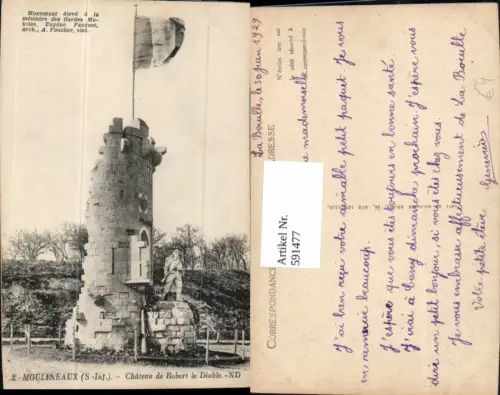 Monument élevé à la
mémoire des Gardes Mo-
biles. Eugène Fauquet,
arch., A. Foucher, stat.
2 - MOULINEAUX (S-Inf.). - Château de Robert le Diable. - ND
CORRESPONDANCE
ADRESSE
N'écrire que sur
le côté réservé à
la correspondance
La Bouille, le 30 juin 1929
mademoiselle
J'ai bien reçu votre aimable petit paquet. Je vous
en remercie beaucoup.
J'espère que vous êtes toujours en bonne santé.
J'irai à dimanche prochain. J'espère vous
dire un petit bonjour, si vous êtes chez vous.
Je vous embrasse affectueusement de La Bouille
Votre petite
Geneviève
Artikel Nr.
591477